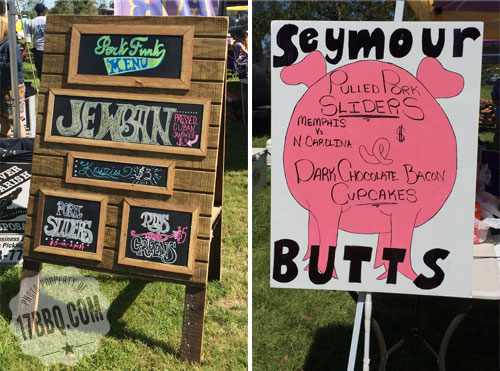 Pork Funk
MENU
JEWBAN
PRESSED
CUBAN
SANDWICH
PORK
SLIDERS
RIBS
GREENS
$5
PHOTO PROPERTY OF
17BBQ.COM
SEYMOUR
PULLED PORK
SLIDERS
MEMPHIS
VS.
N CAROLINA
$
DARK CHOCOLATE BACON
CUPCAKES
BUTTS